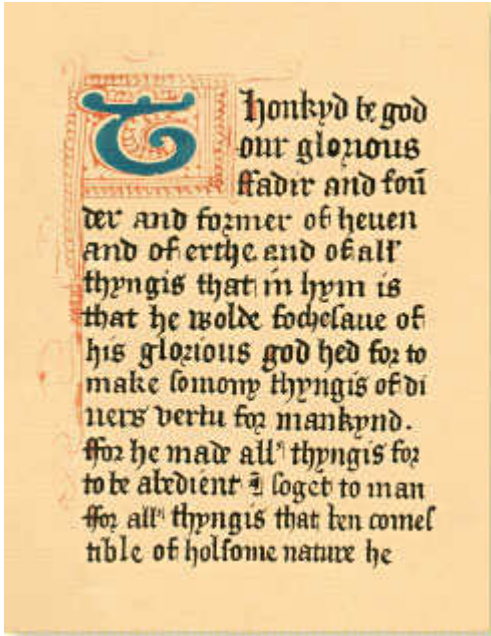 Thonkyd be god
our glorious
ffadir and foū
der and former of heuen
and of erthe and of all'
thyngis that in hym is
that he wolde fochesaue of
his glorious god hed for to
make somony thyngis of di
uers vertu for mankynd.
ffor he made all' thyngis for
to be abedient ⁊ soget to man
ffor all' thyngis that ben comes
tible of holsome nature he